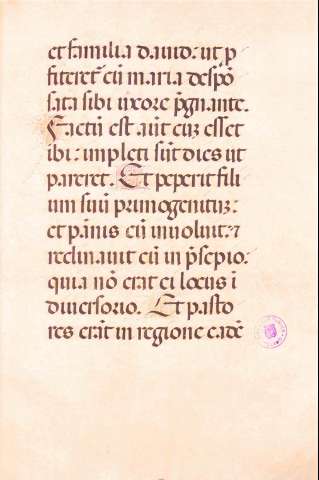 et familia dauid: ut p̱
fiteret᷑ cū maria despō
sata sibi uxore p̱gnante.
Factū est aūt cuʒ esset
ibi: impleti sūt dies ut
pareret. Et peperit fili
um suū primogenituʒ:
et pānis eū inuoluit: ⁊
reclinauit eū in p̄sepio:
quia nō erat ei locus ī
diuersorio. Et pasto
res erāt in regione eadē